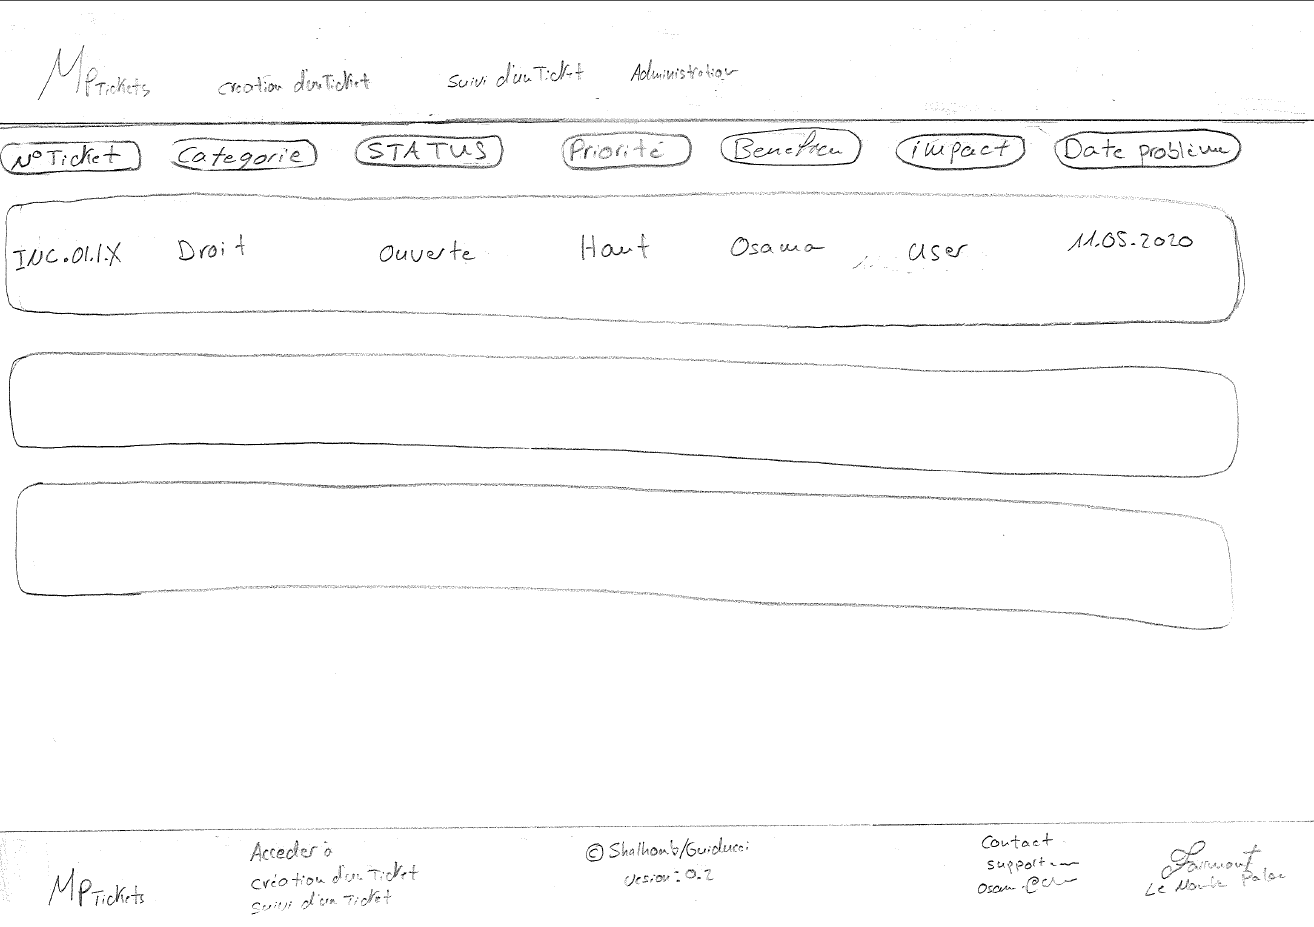 MPTickets
creation d'un Ticket
Suivi d'un Ticket
Administration
N° Ticket
Categorie
STATUS
Priorité
impact
Date problème
INC.01.1.X
Droit
Ouverte
Haut
Osama
user
11.05.2020
MPTickets
Acceder à
création d'un Ticket
Suivi d'un Ticket
© Shalhoub/Guiducci
Version: 0.2
Contact
support
Fairmont
Le